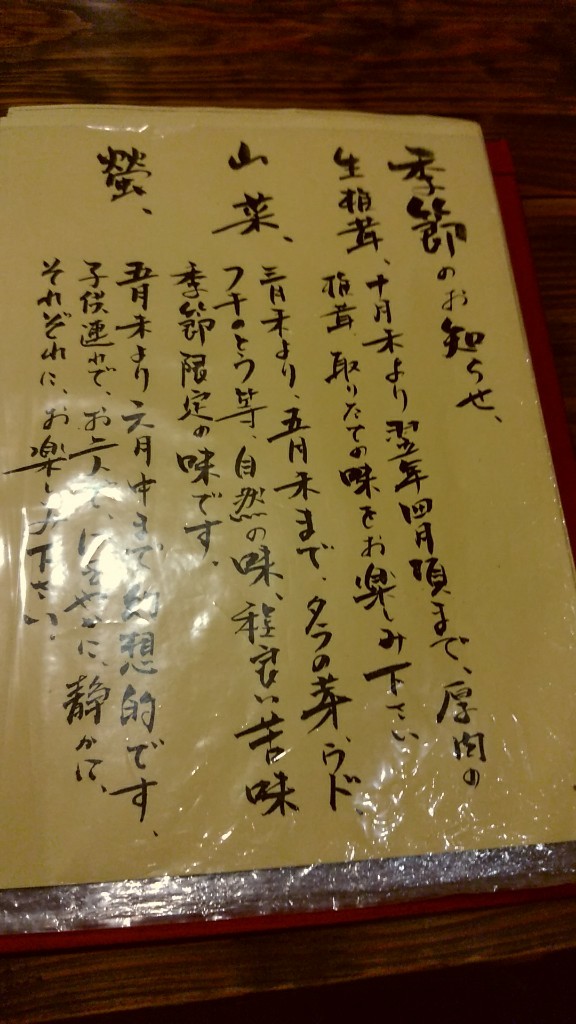 季節のお知らせ、
生椎茸、十月末より翌年四月頃まで、厚肉の
椎茸、取りたての味をお楽しみ下さい
山菜、
三月末より、五月末まで、タラの芽、ウド、
フキのとう等、自然の味、程良い苦味
季節限定の味です。
螢、
五月末より六月中まで幻想的です、
子供連れで、お二人で、にぎやかに、静かに、
それぞれに、お楽しみ下さい。